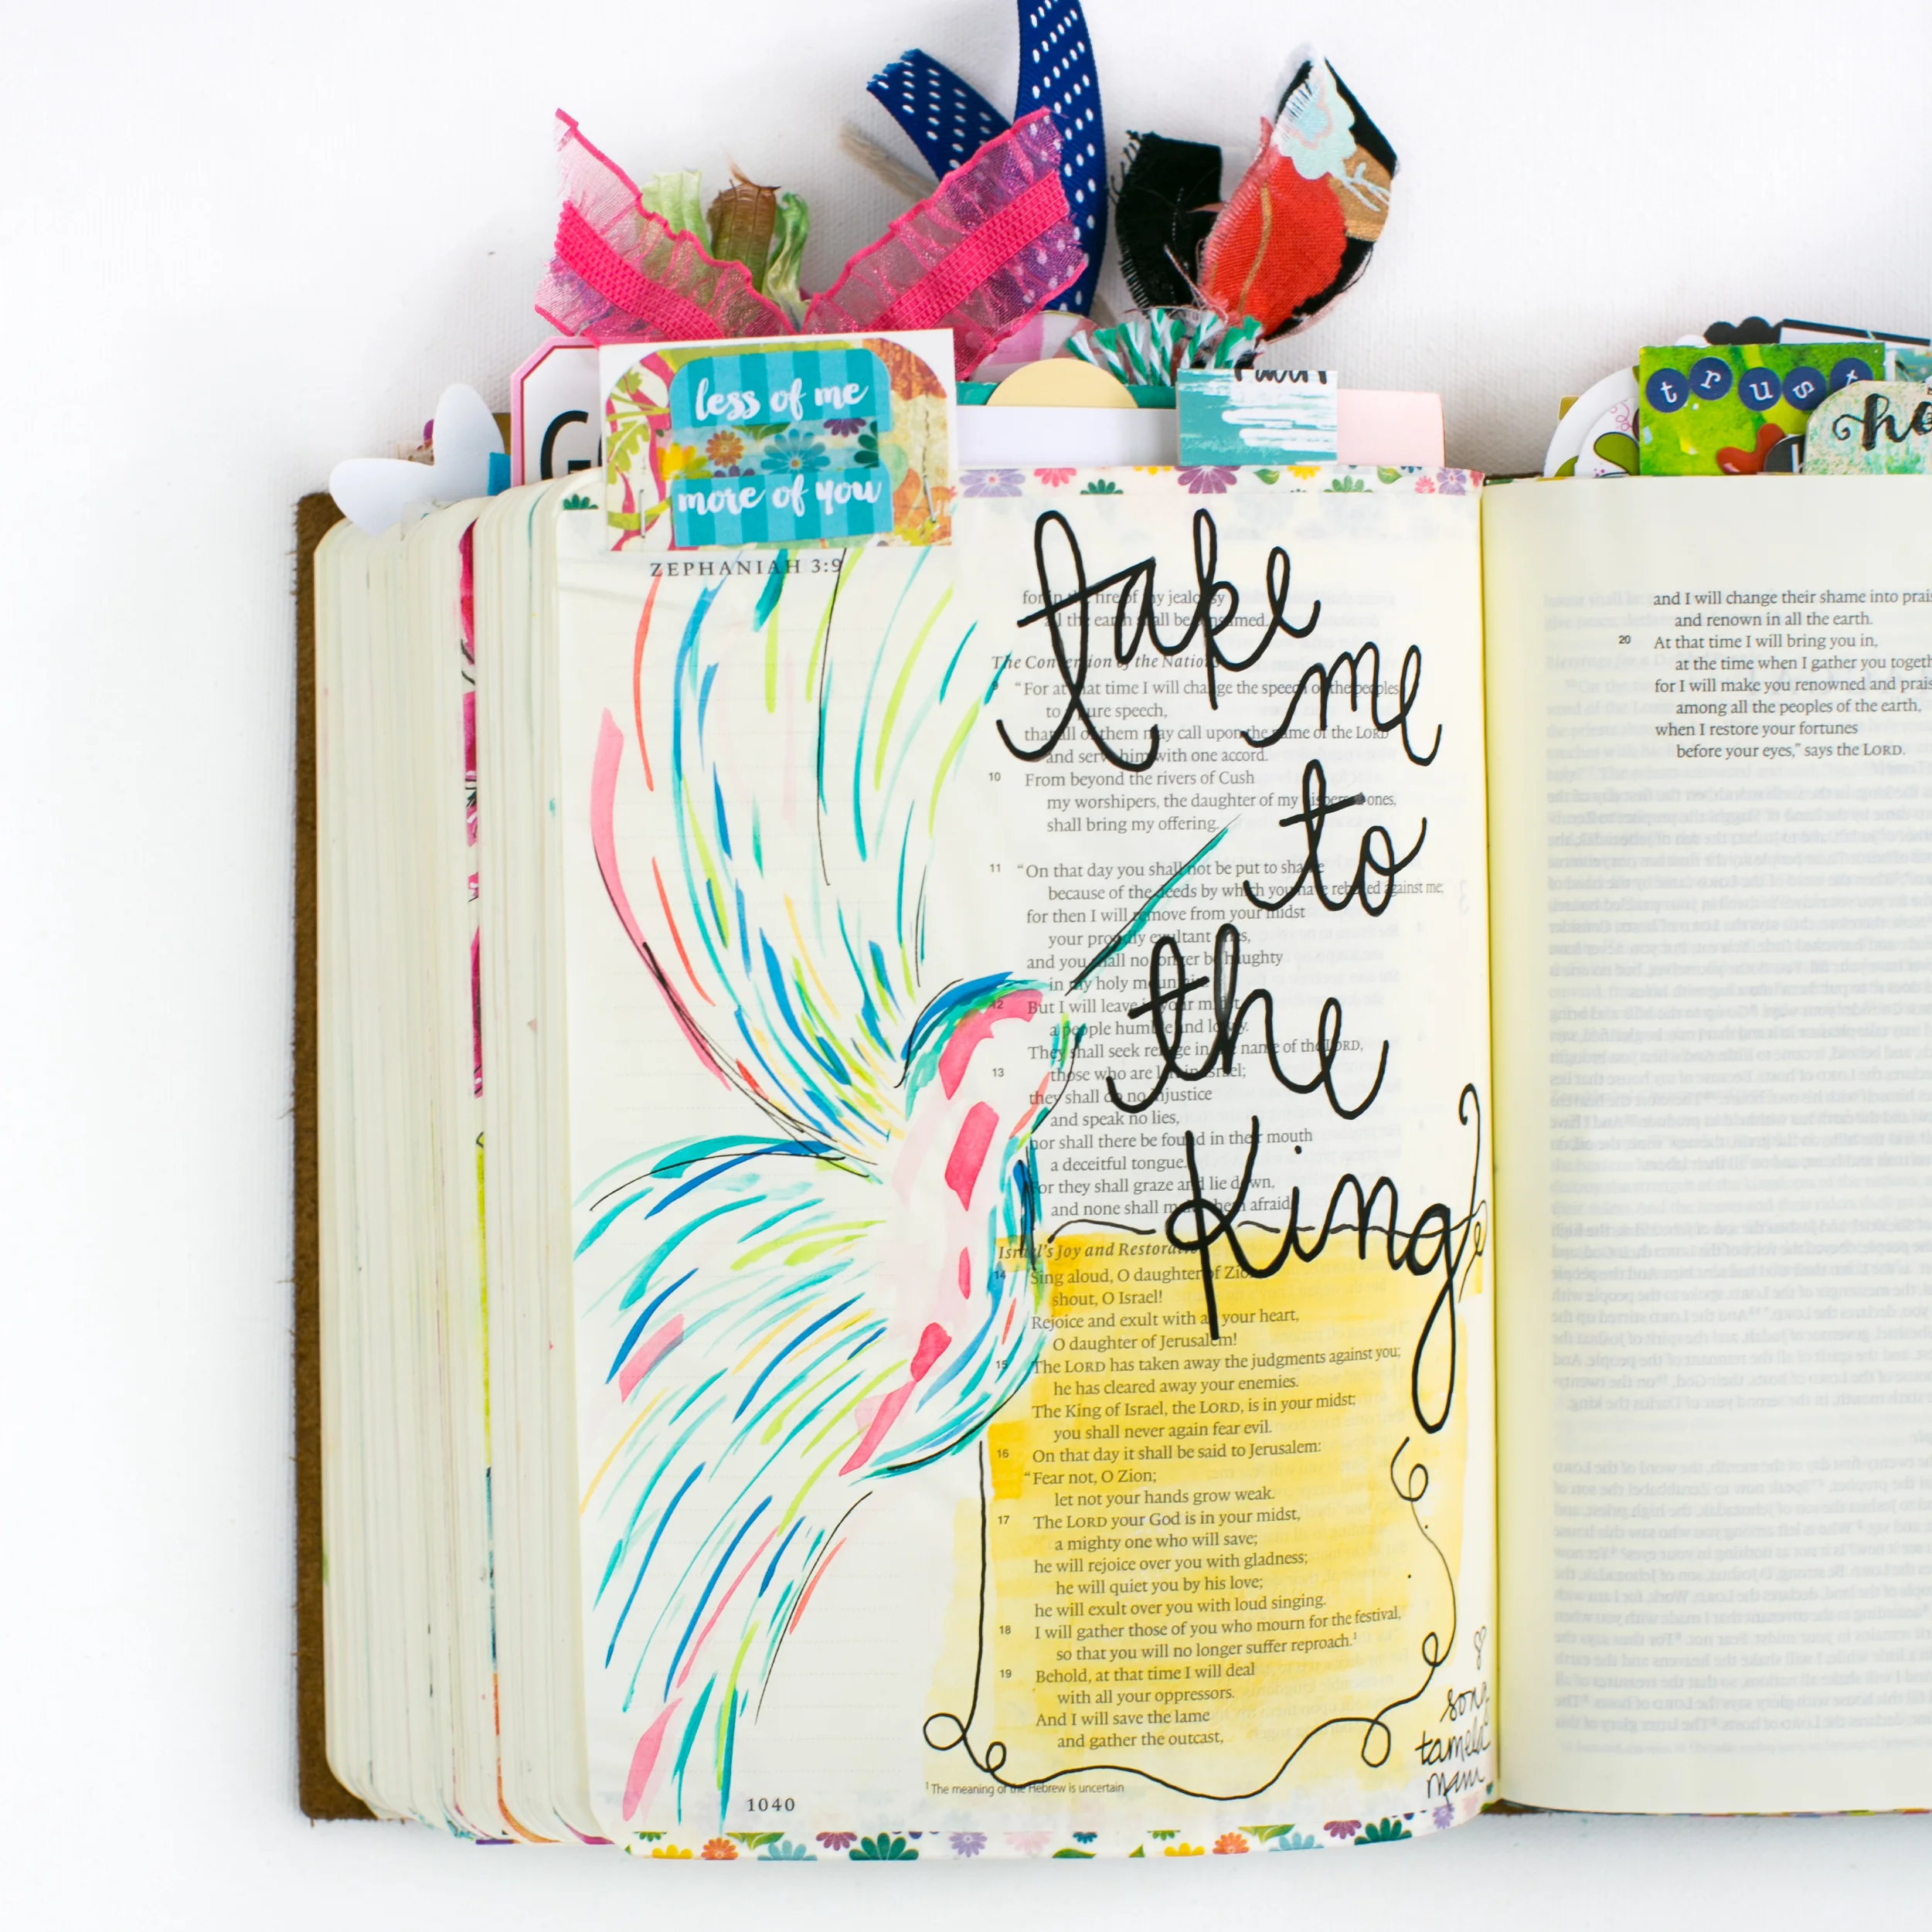 less of me
more of you
trust
ZEPHANIAH 3:9
take
me
to
the
King
for in the fire of my jealousy
all the earth shall be consumed.
The Conversion of the Nations
9 “For at that time I will change the speech of the peoples
to a pure speech,
that all of them may call upon the name of the LORD
and serve him with one accord.
10 From beyond the rivers of Cush
my worshipers, the daughter of my dispersed ones,
shall bring my offering.
11 “On that day you shall not be put to shame
because of the deeds by which you have rebelled against me;
for then I will remove from your midst
your proudly exultant ones,
and you shall no longer be haughty
in my holy mountain.
12 But I will leave in your midst
a people humble and lowly.
They shall seek refuge in the name of the LORD,
13 those who are left in Israel;
they shall do no injustice
and speak no lies,
nor shall there be found in their mouth
a deceitful tongue.
For they shall graze and lie down,
and none shall make them afraid.”
Israel’s Joy and Restoration
14 Sing aloud, O daughter of Zion;
shout, O Israel!
Rejoice and exult with all your heart,
O daughter of Jerusalem!
15 The LORD has taken away the judgments against you;
he has cleared away your enemies.
The King of Israel, the LORD, is in your midst;
you shall never again fear evil.
16 On that day it shall be said to Jerusalem:
“Fear not, O Zion;
let not your hands grow weak.
17 The LORD your God is in your midst,
a mighty one who will save;
he will rejoice over you with gladness;
he will quiet you by his love;
he will exult over you with loud singing.
18 I will gather those of you who mourn for the festival,
so that you will no longer suffer reproach.¹
19 Behold, at that time I will deal
with all your oppressors.
And I will save the lame
and gather the outcast,
song-
tamela
mann
¹ The meaning of the Hebrew is uncertain
1040
and I will change their shame into
and renown in all the earth.
20 At that time I will bring you in,
at the time when I gather you
for I will make you renowned and
among all the peoples of the earth,
when I restore your fortunes
before your eyes,” says the LORD.